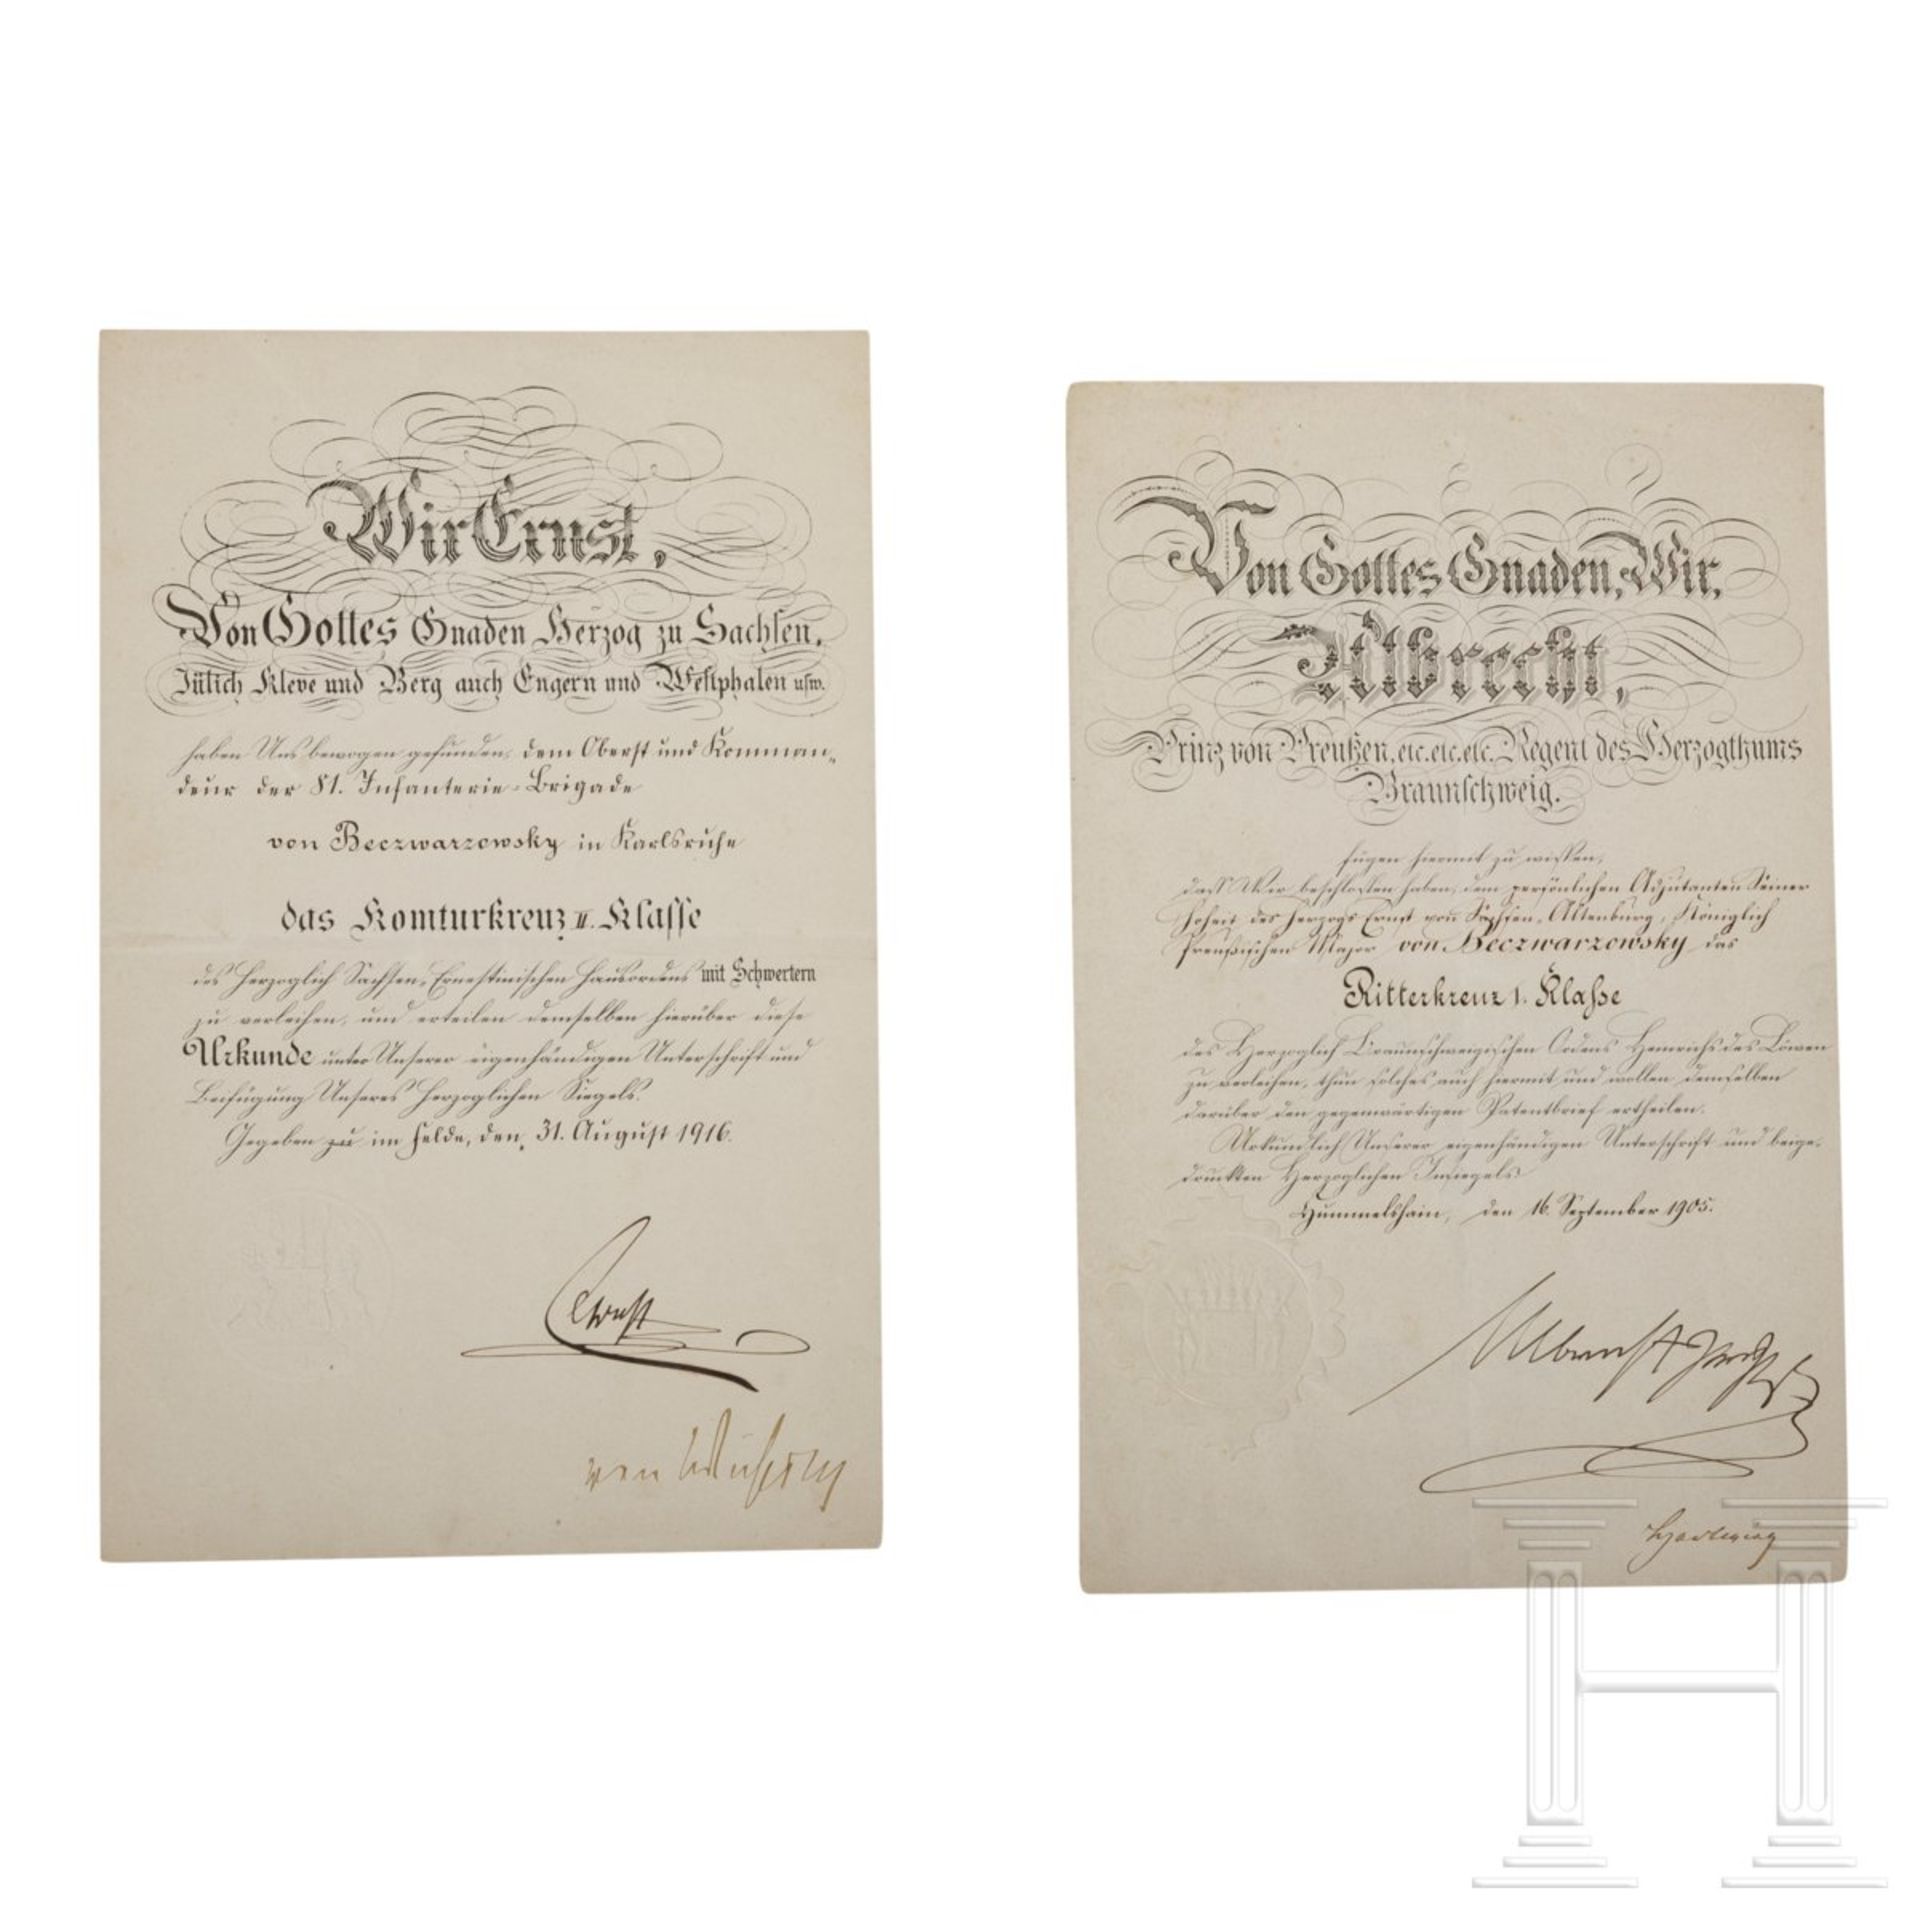 Wir Ernst,
Von Gottes Gnaden Herzog zu Sachsen,
Jülich Kleve und Berg auch Engern und Westphalen usw.
haben Uns bewogen gefunden, dem Oberst und Komman-
deur der 81. Infanterie-Brigade
von Beczwarzowsky in Karlsruhe
das Komturkreuz II. Klasse
des Herzoglich Sachsen-Ernestinischen Hausordens mit Schwertern
zu verleihen, und erteilen demselben hierüber diese
Urkunde unter Unserer eigenhändigen Unterschrift und
Beifügung Unseres Herzoglichen Siegels.
Gegeben zu im Felde, den 31. August 1916.
Ernst
von
Von Gottes Gnaden, Wir,
Albrecht,
Prinz von Preußen, etc. etc. etc. Regent des Herzogthums
Braunschweig.
fügen hiermit zu wissen,
daß Wir beschlossen haben, dem persönlichen Adjutanten Seiner
Hoheit des Herzogs Ernst von Sachsen-Altenburg, Königlich
Preußischen Major von Beczwarzowsky das
Ritterkreuz 1. Klaße
des Herzoglich Braunschweigischen Ordens Heinrichs des Löwen
zu verleihen, thun solches auch hiermit und wollen demselben
darüber den gegenwärtigen Patentbrief ertheilen.
Urkundlich Unserer eigenhändigen Unterschrift und beige-
druckten Herzoglichen Insiegels.
Hummelshain, den 16. September 1905.
Albrecht
H